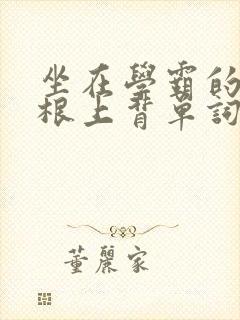 坐在學霸的
根上背單詞
董麗家